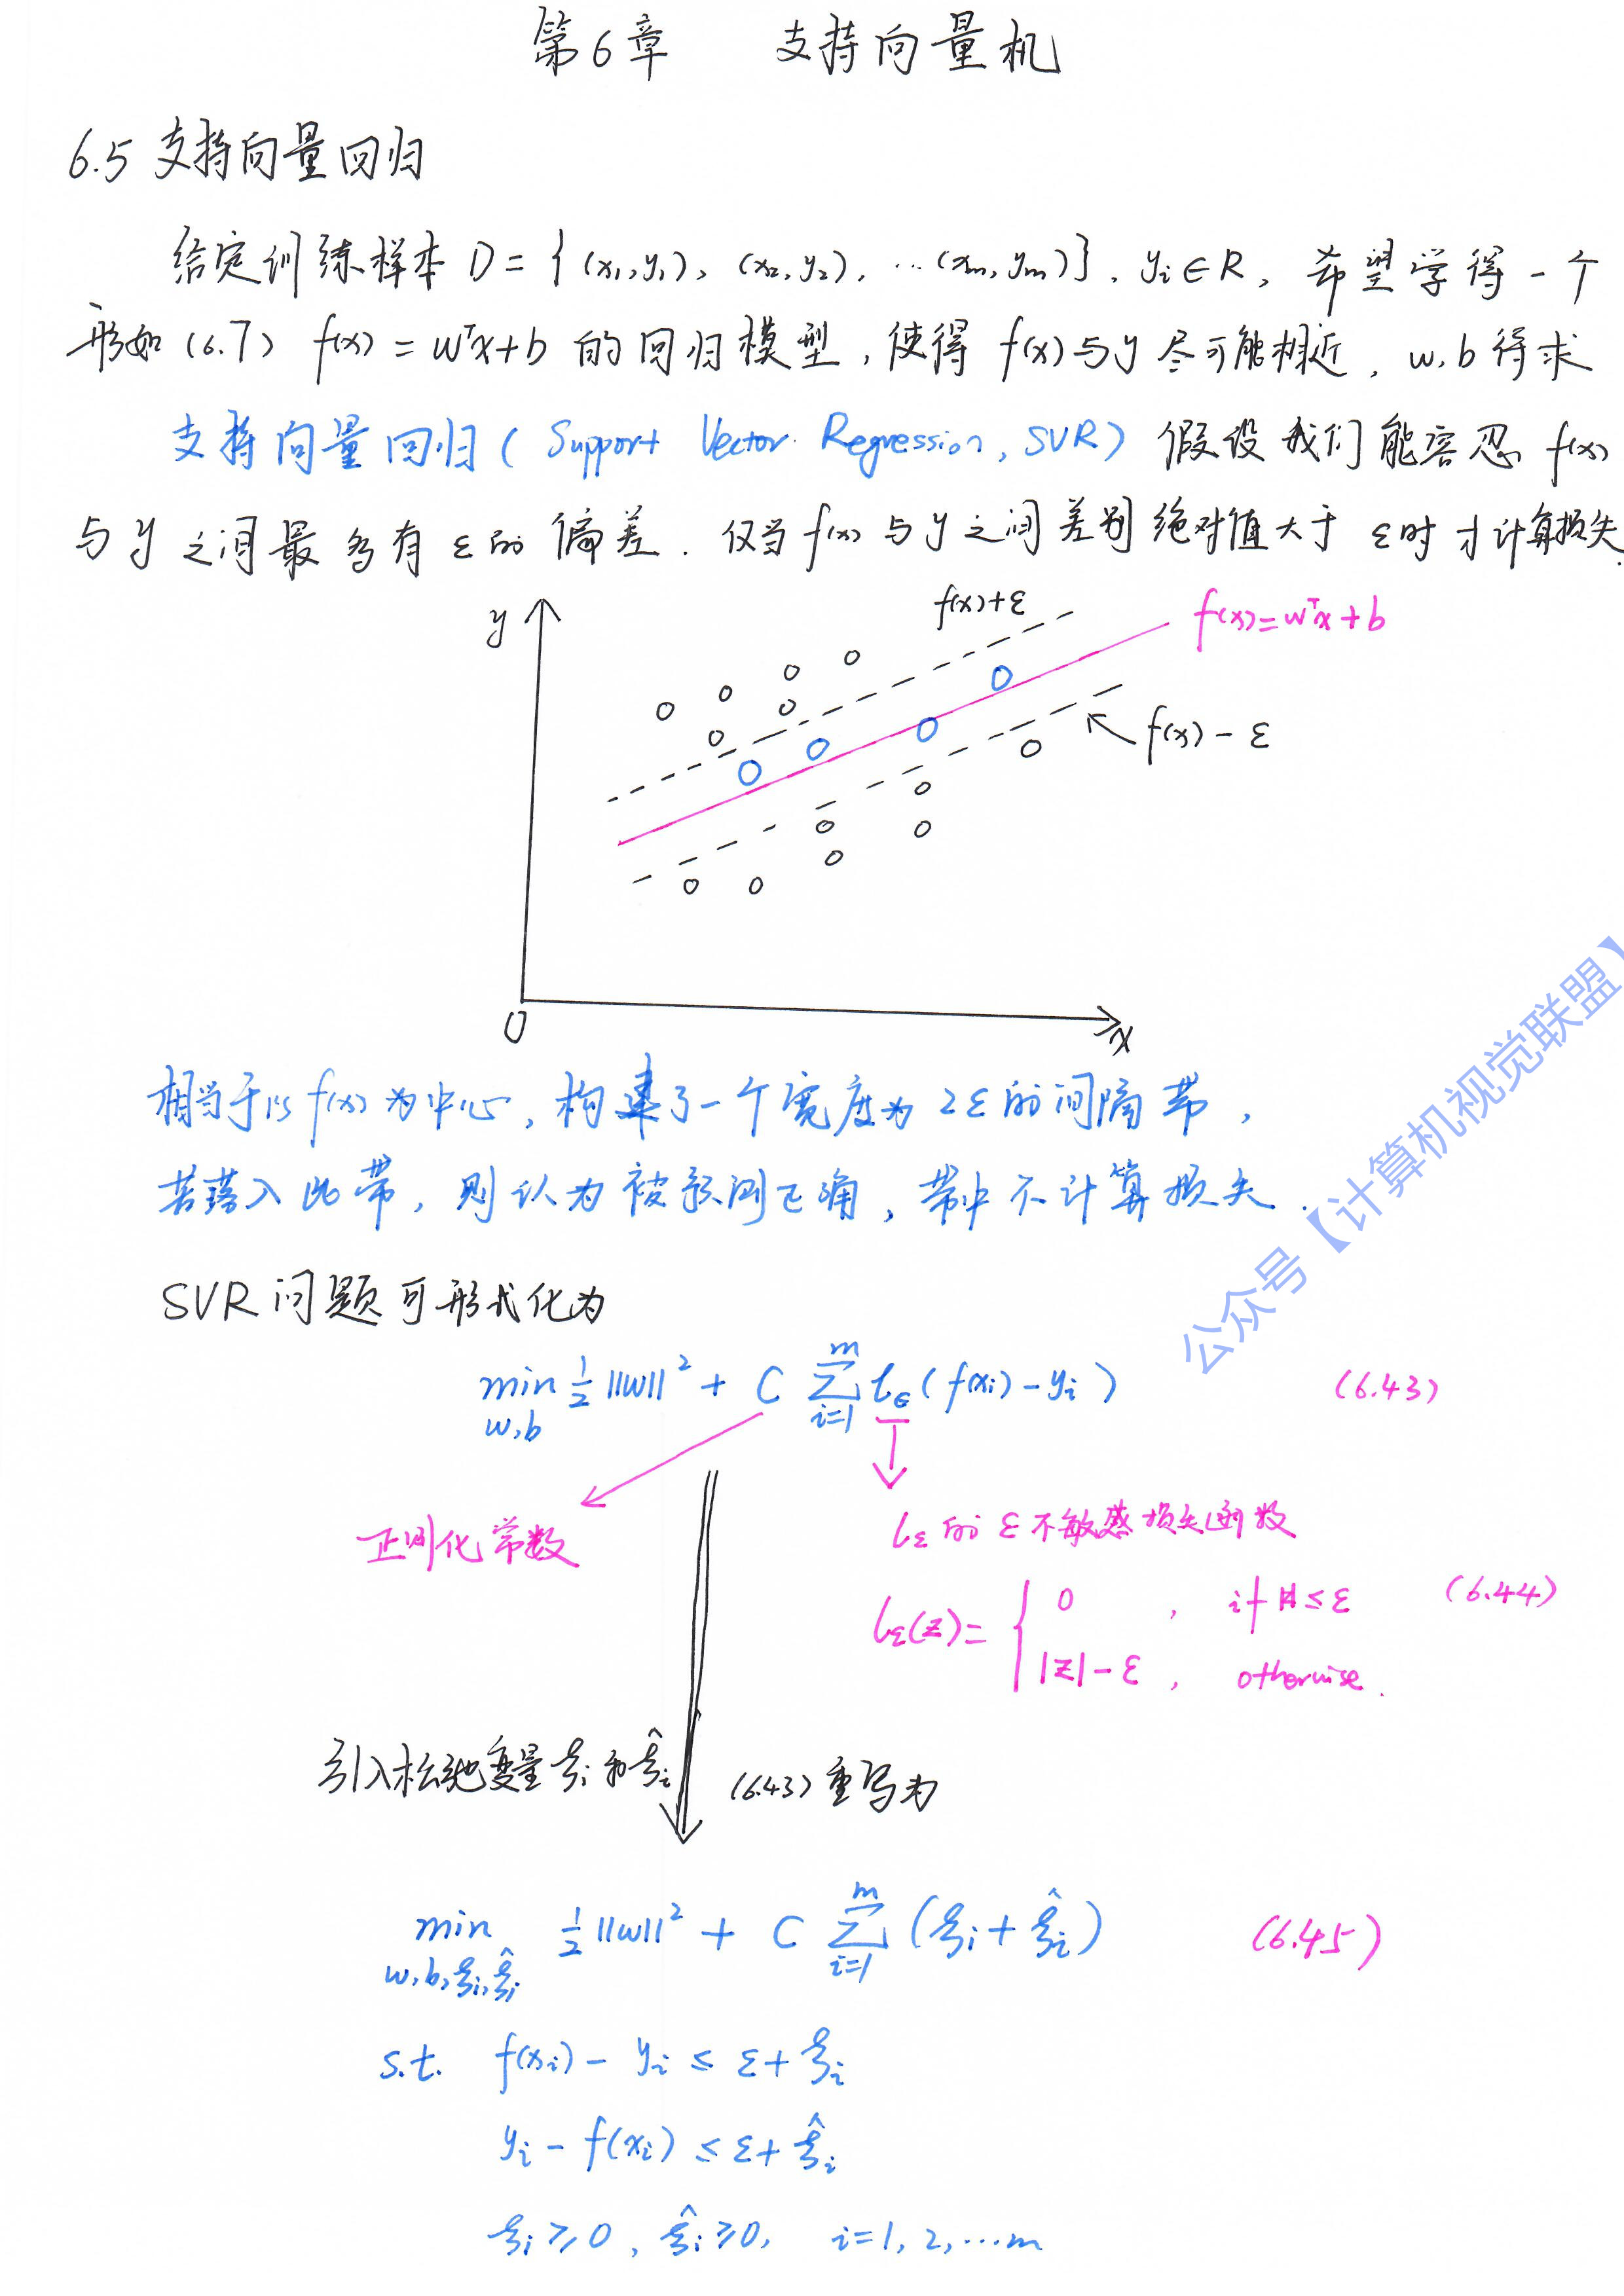 第6章 支持向量机
6.5 支持向量回归
给定训练样本 D = {(x₁,y₁), (x₂,y₂), …(xₘ,yₘ)}, yᵢ∈R, 希望学得一个
形如(6.7) f(x) = wᵀx+b 的回归模型,使得 f(x)与y 尽可能相近, w,b 待求
支持向量回归( Support Vector Regression, SVR) 假设我们能容忍 f(x)
与 y 之间最多有 ε的 偏差. 仅当 f(x) 与 y 之间差别绝对值大于 ε时才计算损失.
y
f(x)+ε
f(x)=wᵀx+b
f(x)-ε
0
x
相当于以 f(x)为中心,构建了一个宽度为 2ε的间隔带,
若落入此带,则认为被预测正确,带中不计算损失.
SVR 问题可形式化为
min_{w,b} ½||w||² + C ∑_{i=1}^{m} ℓ_ε(f(xᵢ)-yᵢ) (6.43)
正则化常数
ℓ_ε的 ε不敏感损失函数
ℓ_ε(z)= { 0 , if |z|≤ε (6.44)
|z|-ε , otherwise.
引入松弛变量 ξᵢ和ξ̂ᵢ
(6.43)重写为
min_{w,b,ξᵢ,ξ̂ᵢ} ½||w||² + C ∑_{i=1}^{m} (ξᵢ+ξ̂ᵢ) (6.45)
s.t. f(xᵢ)- yᵢ ≤ ε+ξᵢ
yᵢ - f(xᵢ) ≤ ε+ξ̂ᵢ
ξᵢ≥0, ξ̂ᵢ≥0, i=1,2,…m
公众号【计算机视觉联盟】